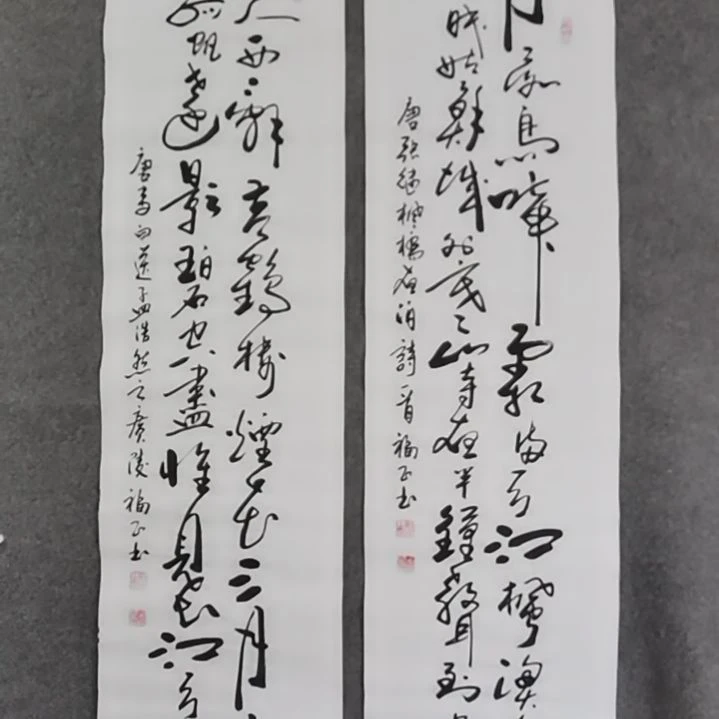 月落烏啼霜滿天江楓漁
眠姑蘇城外寒山寺夜半鐘聲到
唐張繼楓橋夜泊詩一首福正书
人西辭黃鶴樓煙花三月
孤帆遠影碧空盡惟見長江天
唐李白送孟浩然之廣陵福正书